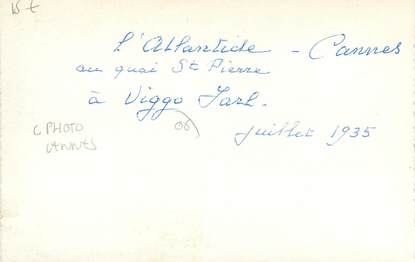 15 €
L'Atlantide - Cannes
au quai St Pierre
à Viggo Jarl.
juillet 1935
C PHOTO
CANNES
06